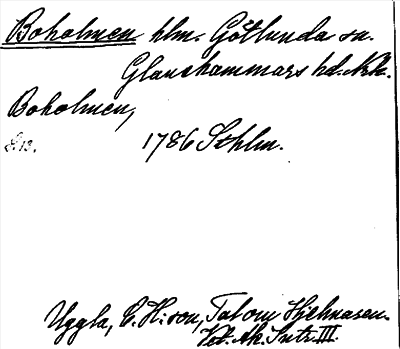 Boholmen hlm. Götlunda sn.
Glanshammars hd. Nke.
Boholmen,
S. 13.
1786 Sthlm.
Uggla, C. H:son, Tal om Hjelmaren.
Vet. Ak. Intr. III.